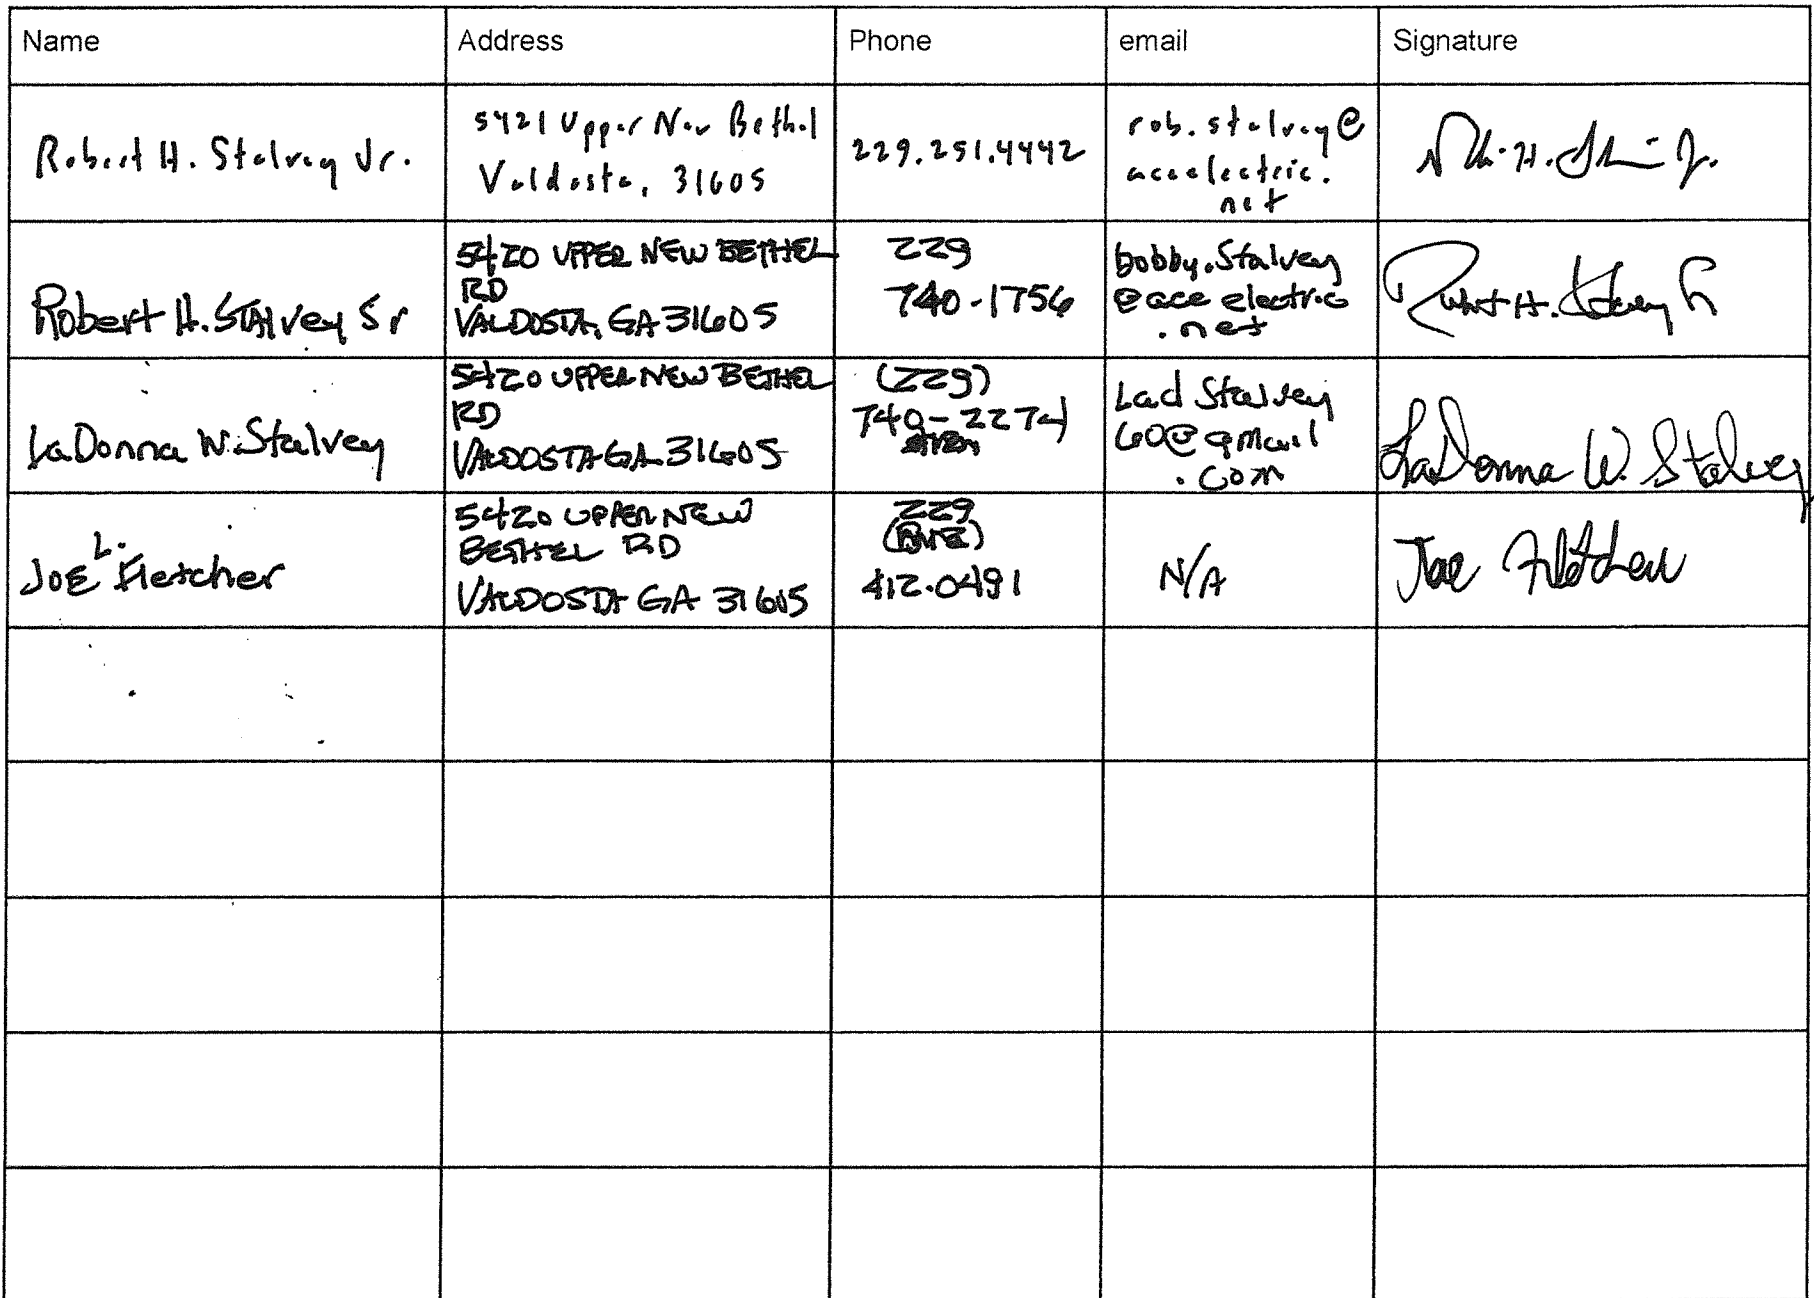 Name Address Phone email Signature
Robert H. Stalvey Jr.
5421 Upper New Bethel
Valdosta, 31605
229.251.4442
rob.stalvey@
aceelectric.
net
Robert H. STAlvey Sr
5420 UPPER NEW BETHEL
RD
VALDOSTA, GA 31605
229
740-1756
bobby.Stalvey
@ace electric
.net
Robert H. Stalvey Sr
LaDonna W. Stalvey
5420 UPPER NEW BETHEL
RD
VALDOSTA GA 31605
(229)
740-2274
Lad Stalvey
60@gmail
.com
LaDonna W. Stalvey
JOE L. Fletcher
5420 UPPER NEW
BETHEL RD
VALDOSTA GA 31605
229
412.0491
N/A
Joe Fletcher